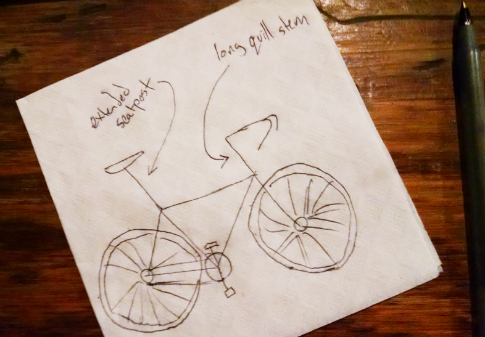 extended
seatpost
long quill stem